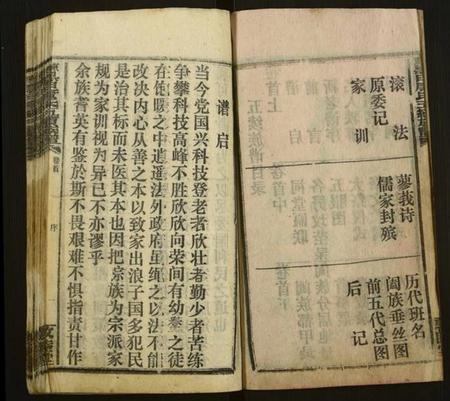 滚法
原委记
家训
蓼莪诗
儒家封殡
历代班名
阖族垂丝图
前五代总图
后记
谱启
当今党国兴科技登老者欣壮者勤少者苦练
争攀科技高峰不胜欣欣向荣间有幼辈之徒
在饱暖之中逍遥法外政府虽绳之以法不能
改决内心从善之本以致家出浪子国多犯民
是治其标而未医其本也因把宗族为宗派家
规为家训视为异已不亦谬乎
余族耆英有鉴於斯不畏艰难不惧指责甘作
卷首
序